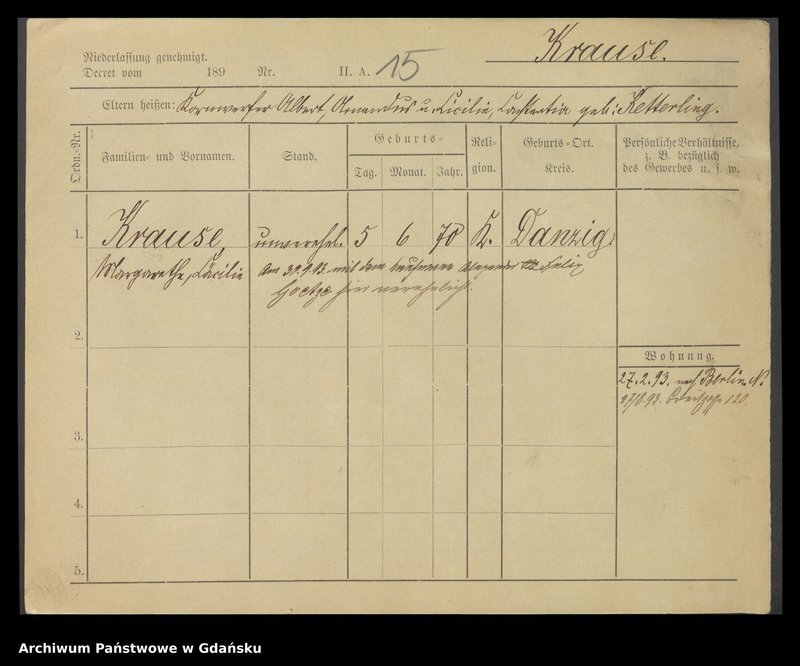 Krause.
Niederlassung genehmigt.
Decret vom 189 Nr. II. A. 15
Eltern heißen: Kornwerfer Albert, Amandus u. Cicilie, geb: Ketterling.
Ordn.-Nr.
Familien- und Vornamen.
Stand.
Geburts-
Tag. Monat. Jahr.
Religion.
Geburts-Ort.
Kreis.
Persönliche Verhältnisse,
z. B. bezüglich
des Gewerbes u. s. w.
1. Krause, unverehel. 5 6 70 K. Danzig.
Margarethe, Cäcilie Am mit dem Alexander Felix
Goetze hier verehelicht.
2.
Wohnung.
27.2.93. nach Berlin N.
27/8.93. 120.
3.
4.
5.
Archiwum Państwowe w Gdańsku